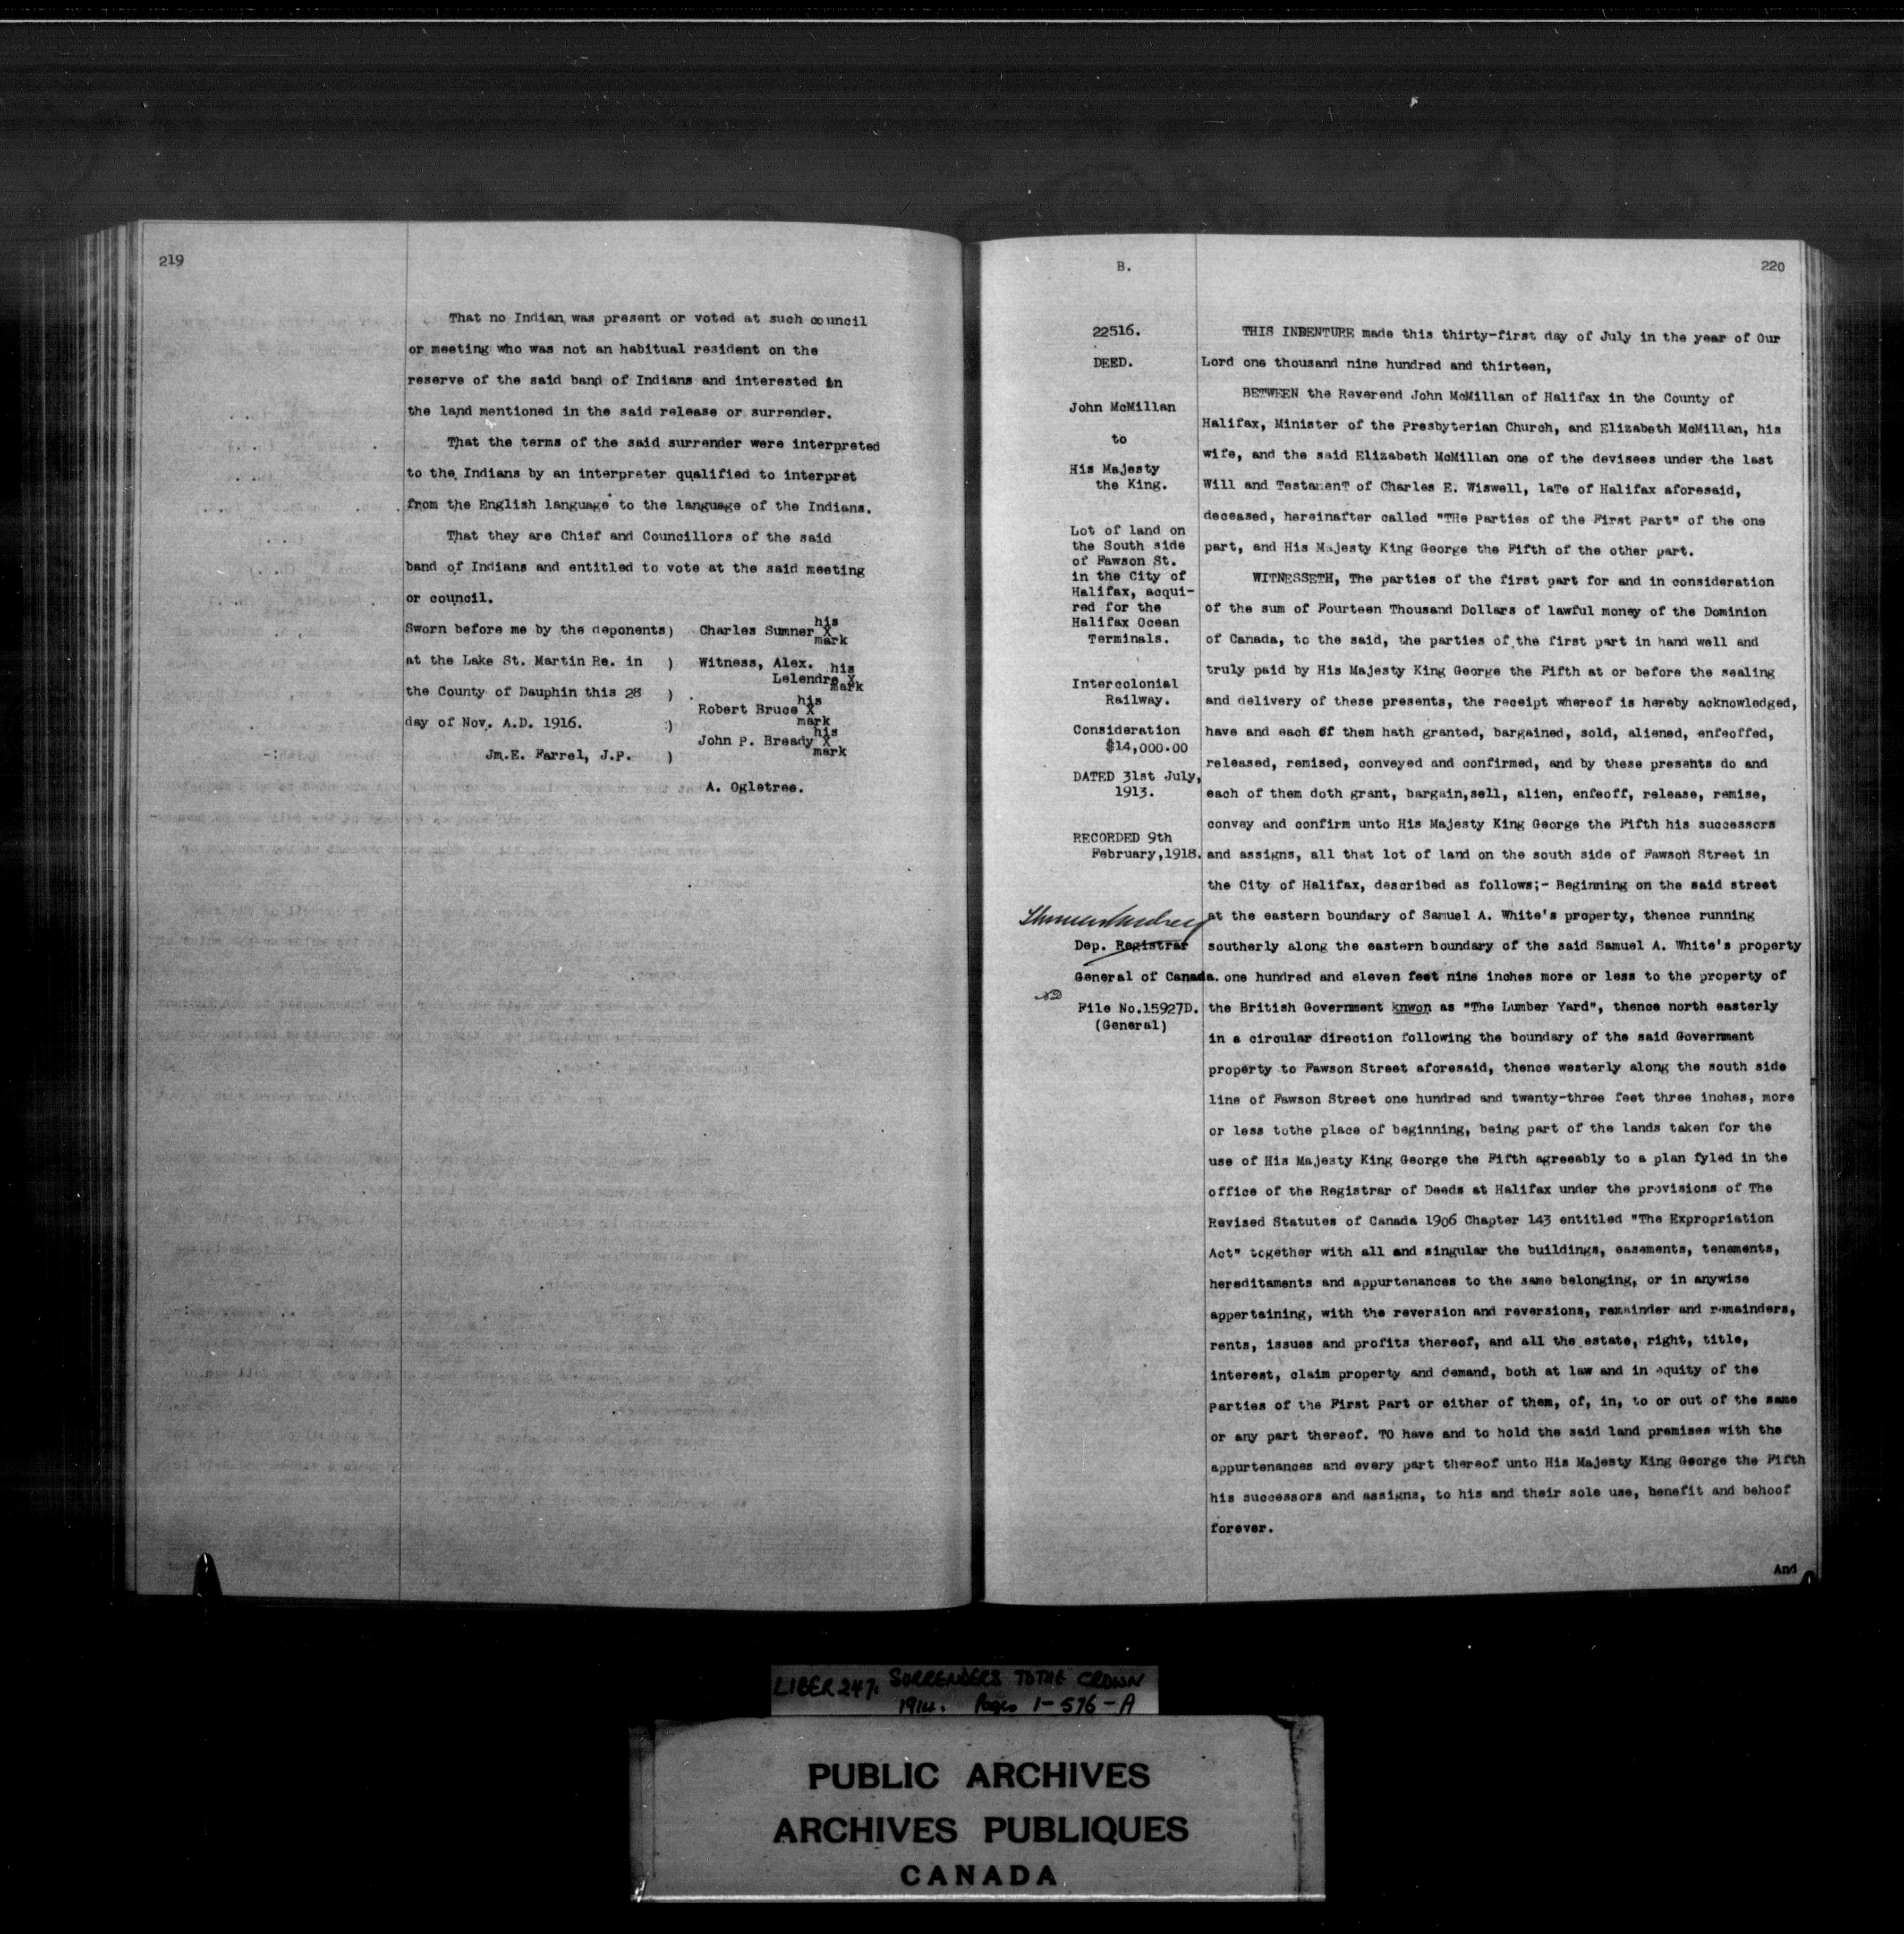 219
That no Indian was present or voted at such council
or meeting who was not an habitual resident on the
reserve of the said band of Indians and interested in
the land mentioned in the said release or surrender.
That the terms of the said surrender were interpreted
to the Indians by an interpreter qualified to interpret
from the English language to the language of the Indians.
That they are Chief and Councillors of the said
band of Indians and entitled to vote at the said meeting
or council.
Sworn before me by the deponents)
at the Lake St. Martin Re. in )
the County of Dauphin this 28 )
day of Nov. A.D. 1916. )
Jm.E. Farrel, J.P. )
his
Charles Sumner X
mark
Witness, Alex. his
Lelendre X
mark
his
Robert Bruce X
mark
his
John P. Bready X
mark
A. Ogletree.
B.
220
22516.
DEED.
John McMillan
to
His Majesty
the King.
Lot of land on
the South side
of Fawson St.
in the City of
Halifax, acqui-
red for the
Halifax Ocean
Terminals.
Intercolonial
Railway.
Consideration
$14,000.00
DATED 31st July,
1913.
RECORDED 9th
February,1918.
Dep. Registrar
General of Canada.
File No.15927D.
(General)
THIS INDENTURE made this thirty-first day of July in the year of Our
Lord one thousand nine hundred and thirteen,
BETWEEN the Reverend John McMillan of Halifax in the County of
Halifax, Minister of the Presbyterian Church, and Elizabeth McMillan, his
wife, and the said Elizabeth McMillan one of the devisees under the last
Will and TestamenT of Charles E. Wiswell, laTe of Halifax aforesaid,
deceased, hereinafter called "THe Parties of the First Part" of the one
part, and His Majesty King George the Fifth of the other part.
WITNESSETH, The parties of the first part for and in consideration
of the sum of Fourteen Thousand Dollars of lawful money of the Dominion
of Canada, to the said, the parties of the first part in hand well and
truly paid by His Majesty King George the Fifth at or before the sealing
and delivery of these presents, the receipt whereof is hereby acknowledged,
have and each of them hath granted, bargained, sold, aliened, enfeoffed,
released, remised, conveyed and confirmed, and by these presents do and
each of them doth grant, bargain,sell, alien, enfeoff, release, remise,
convey and confirm unto His Majesty King George the Fifth his successors
and assigns, all that lot of land on the south side of Fawson Street in
the City of Halifax, described as follows;- Beginning on the said street
at the eastern boundary of Samuel A. White's property, thence running
southerly along the eastern boundary of the said Samuel A. White's property
one hundred and eleven feet nine inches more or less to the property of
the British Government knwon as "The Lumber Yard", thence north easterly
in a circular direction following the boundary of the said Government
property to Fawson Street aforesaid, thence westerly along the south side
line of Fawson Street one hundred and twenty-three feet three inches, more
or less tothe place of beginning, being part of the lands taken for the
use of His Majesty King George the Fifth agreeably to a plan fyled in the
office of the Registrar of Deeds at Halifax under the provisions of The
Revised Statutes of Canada 1906 Chapter 143 entitled "The Expropriation
Act" together with all and singular the buildings, easements, tenements,
hereditaments and appurtenances to the same belonging, or in anywise
appertaining, with the reversion and reversions, remainder and remainders,
rents, issues and profits thereof, and all the estate, right, title,
interest, claim property and demand, both at law and in equity of the
Parties of the First Part or either of them, of, in, to or out of the same
or any part thereof. TO have and to hold the said land premises with the
appurtenances and every part thereof unto His Majesty King George the Fifth
his successors and assigns, to his and their sole use, benefit and behoof
forever.
And
LIBER 247. SURRENDERS TO THE CROWN
1914. Pages 1-576-A
PUBLIC ARCHIVES
ARCHIVES PUBLIQUES
CANADA